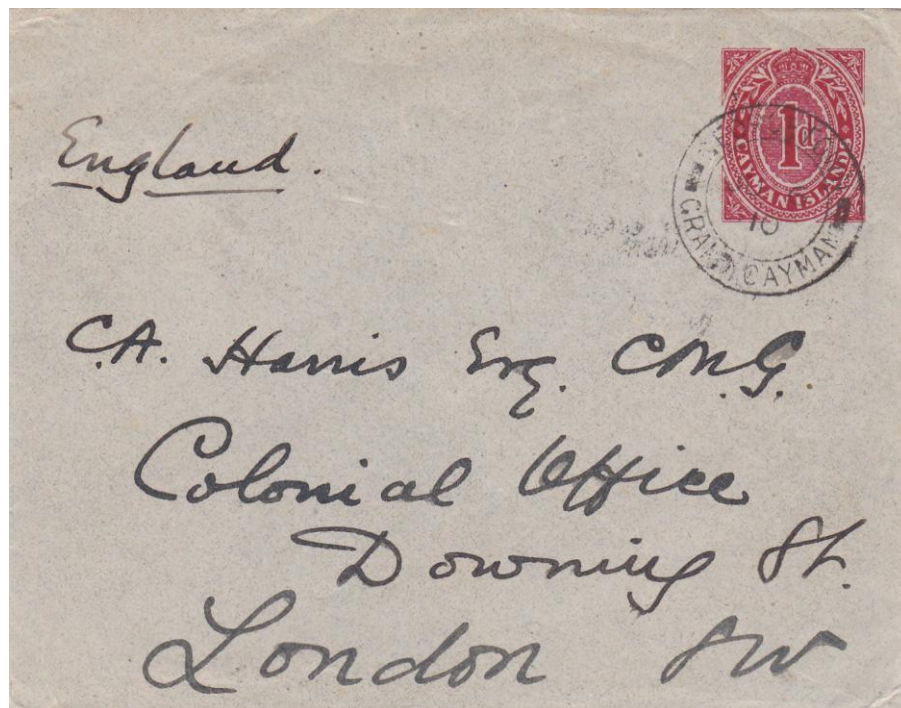 England.
1d
CAYMAN ISLAND
10
GRAND CAYMAN
C.A. Harris Esq. C.M.G.
Colonial Office
Downing St.
London SW